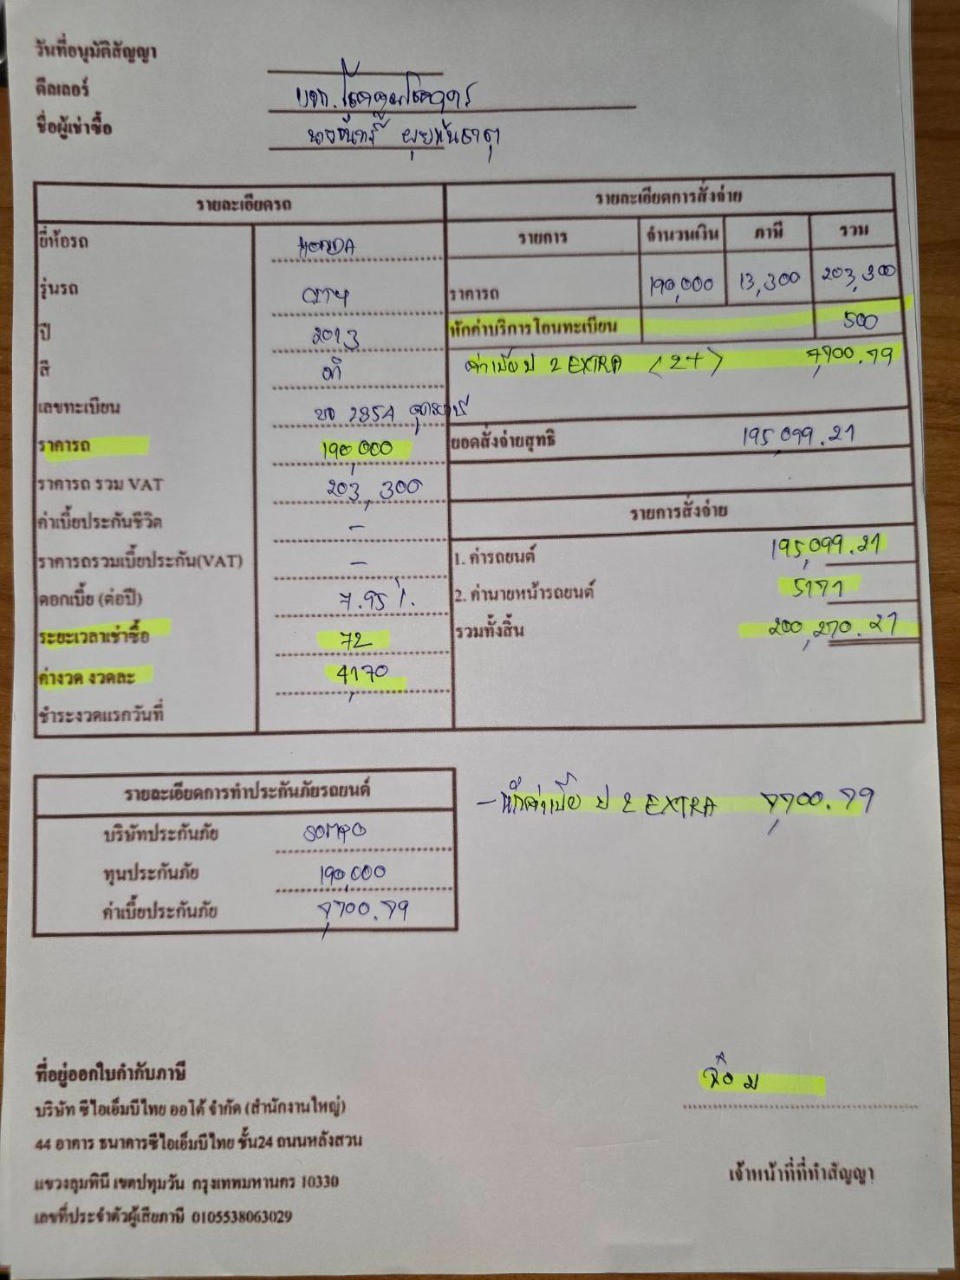 วันที่อนุมัติสัญญา
ดีลเลอร์ บจก.
ชื่อผู้เช่าซื้อ
รายละเอียดรถ
ยี่ห้อรถ HONDA
รุ่นรถ CITY
ปี 2013
สี
เลขทะเบียน
ราคารถ 190,000
ราคารถ รวม VAT 203,300
ค่าเบี้ยประกันชีวิต -
ราคารถรวมเบี้ยประกัน(VAT) -
ดอกเบี้ย (ต่อปี) 7.95 %
ระยะเวลาเช่าซื้อ 72
ค่างวด งวดละ 4,170
ชำระงวดแรกวันที่
รายละเอียดการสั่งจ่าย
รายการ จำนวนเงิน ภาษี รวม
ราคารถ 190,000 13,300 203,300
หักค่าบริการโอนทะเบียน 500
ค่าเบี้ย ป 2 EXTRA (2+) 7,700.79
ยอดสั่งจ่ายสุทธิ 195,099.21
รายการสั่งจ่าย
1. ค่ารถยนต์ 195,099.21
2. ค่านายหน้ารถยนต์ 5171
รวมทั้งสิ้น 200,270.21
รายละเอียดการทำประกันภัยรถยนต์
บริษัทประกันภัย SOMPO
ทุนประกันภัย 190,000
ค่าเบี้ยประกันภัย 7,700.79
- หักค่าเบี้ย ป 2 EXTRA 7,700.79
ที่อยู่ออกใบกำกับภาษี
บริษัท ซีไอเอ็มบีไทย ออโต้ จำกัด (สำนักงานใหญ่)
44 อาคาร ธนาคารซีไอเอ็มบีไทย ชั้น24 ถนนหลังสวน
แขวงลุมพินี เขตปทุมวัน กรุงเทพมหานคร 10330
เลขที่ประจำตัวผู้เสียภาษี 0105538063029
เจ้าหน้าที่ที่ทำสัญญา